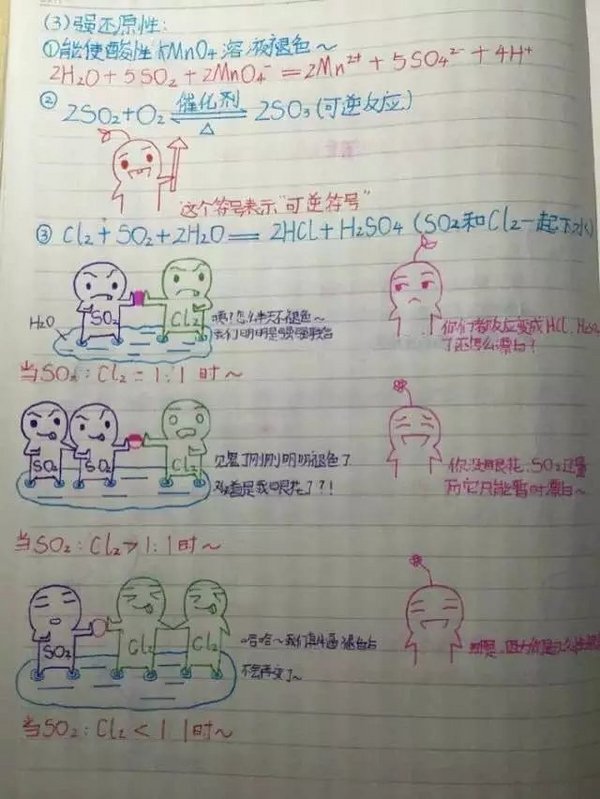 (3)强还原性:
①能使酸性KMnO4溶液褪色~
2H₂O+5SO₂+2MnO₄⁻=2Mn²⁺+5SO₄²⁻+4H⁺
② 2SO₂+O₂ 催化剂 ⇌ △ 2SO₃(可逆反应)
"这个符号表示"可逆符号"
③ Cl₂+SO₂+2H₂O=2HCl+H₂SO₄ (SO₂和Cl₂一起下水)
H₂O
SO₂
Cl₂
咦?怎么半天不褪色~
我们明明是强强联合
你们都反应变成HCl、H₂SO₄
了还怎么漂白?
当SO₂:Cl₂=1:1时~
SO₂
SO₂
Cl₂
见鬼了刚刚明明褪色了
难道是我眼花了?!
你没眼花,SO₂过量
而它只能暂时漂白~
当SO₂:Cl₂>1:1时~
SO₂
Cl₂
Cl₂
哈哈~我们真牛逼褪色后
不会再变了~
当SO₂:Cl₂<1:1时~